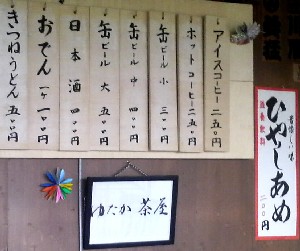 アイスコーヒー 二五〇円
ホットコーヒー 二五〇円
缶ビール 小 三〇〇円
缶ビール 中 四〇〇円
缶ビール 大 五〇〇円
日本酒 四〇〇円
おでん 一ケ 一〇〇円
きつねうどん 五〇〇円
昔懐しい味
ひやしあめ
二〇〇円
ゆたか 茶屋